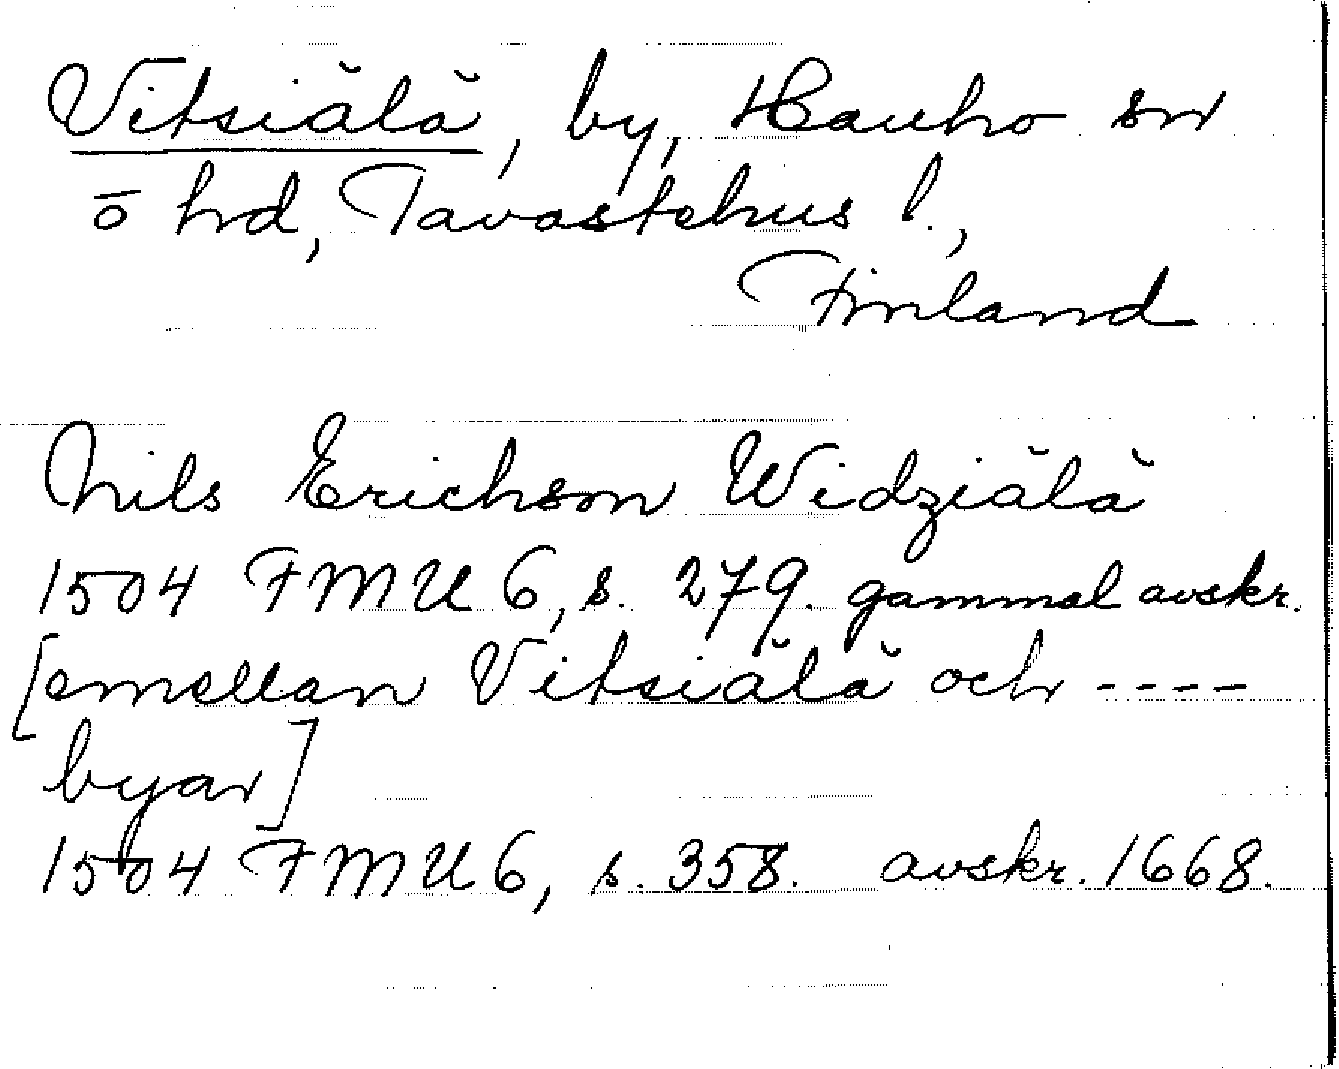 Vitsiälä, by, Hauho sn
ö hd, Tavastehus l.,
Finland
Nils Erichson Widziälä
1504 FMU 6, s. 279. gammal avskr.
[emellan Vitsiälä och ----
byar]
1504 FMU 6, s. 358. avskr. 1668.